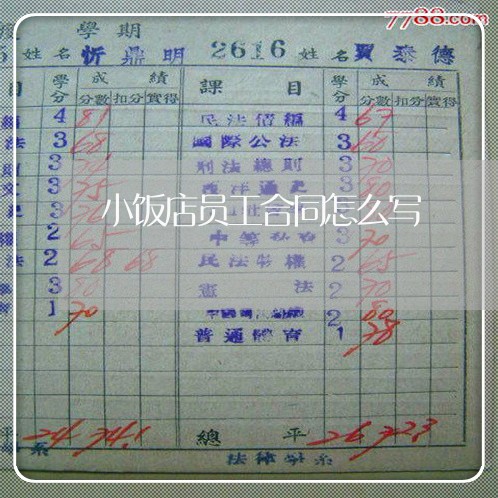 7788.com
學期
姓名 忻鼎明 2616 姓名 賈泰德
目 學分 成績 課目 學分 成績
分數 扣分 實得 分數 扣分 實得
4 81 民法債編 4 67
法 3 68 國際公法 3 60
3 刑法總則 3 70
3 75 西洋通史 3 80
3
小饭店员工合同怎么写
2 65 3 70
法 2 68 68 民法物權 2 65
3 80 憲法 2 70
1 70 2 80
普通體育 1 78
平 24 74.1 總平 26 72.3
系 法律學系